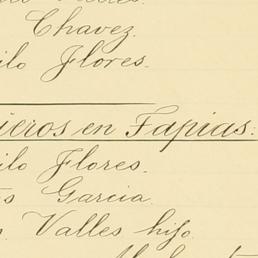 Chavez.
ilo Flores.
ieros en Tapias.
ilo Flores.
s Garcia
Valles hijo